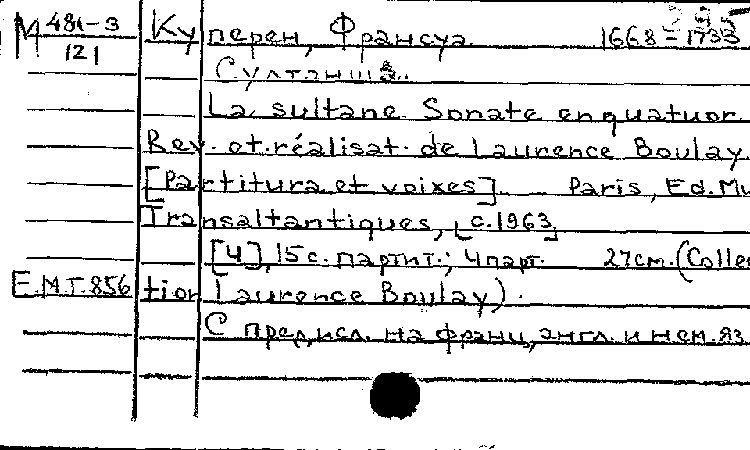 М 481-3 Куперен, Франсуа 1668-1733
121
Султанша.
La sultane Sonate en quatuor
Rev. et.réalisat. de Laurence Boulay
[Partitura et voixes]. Paris, Ed.Mu
Transaltantiques, [c.1963]
[4], 15 с. партит.; 4 парт. 27 см. (Collec
E.M.T.856 tion Laurence Boulay).
С предисл. на франц, англ. и нем. яз